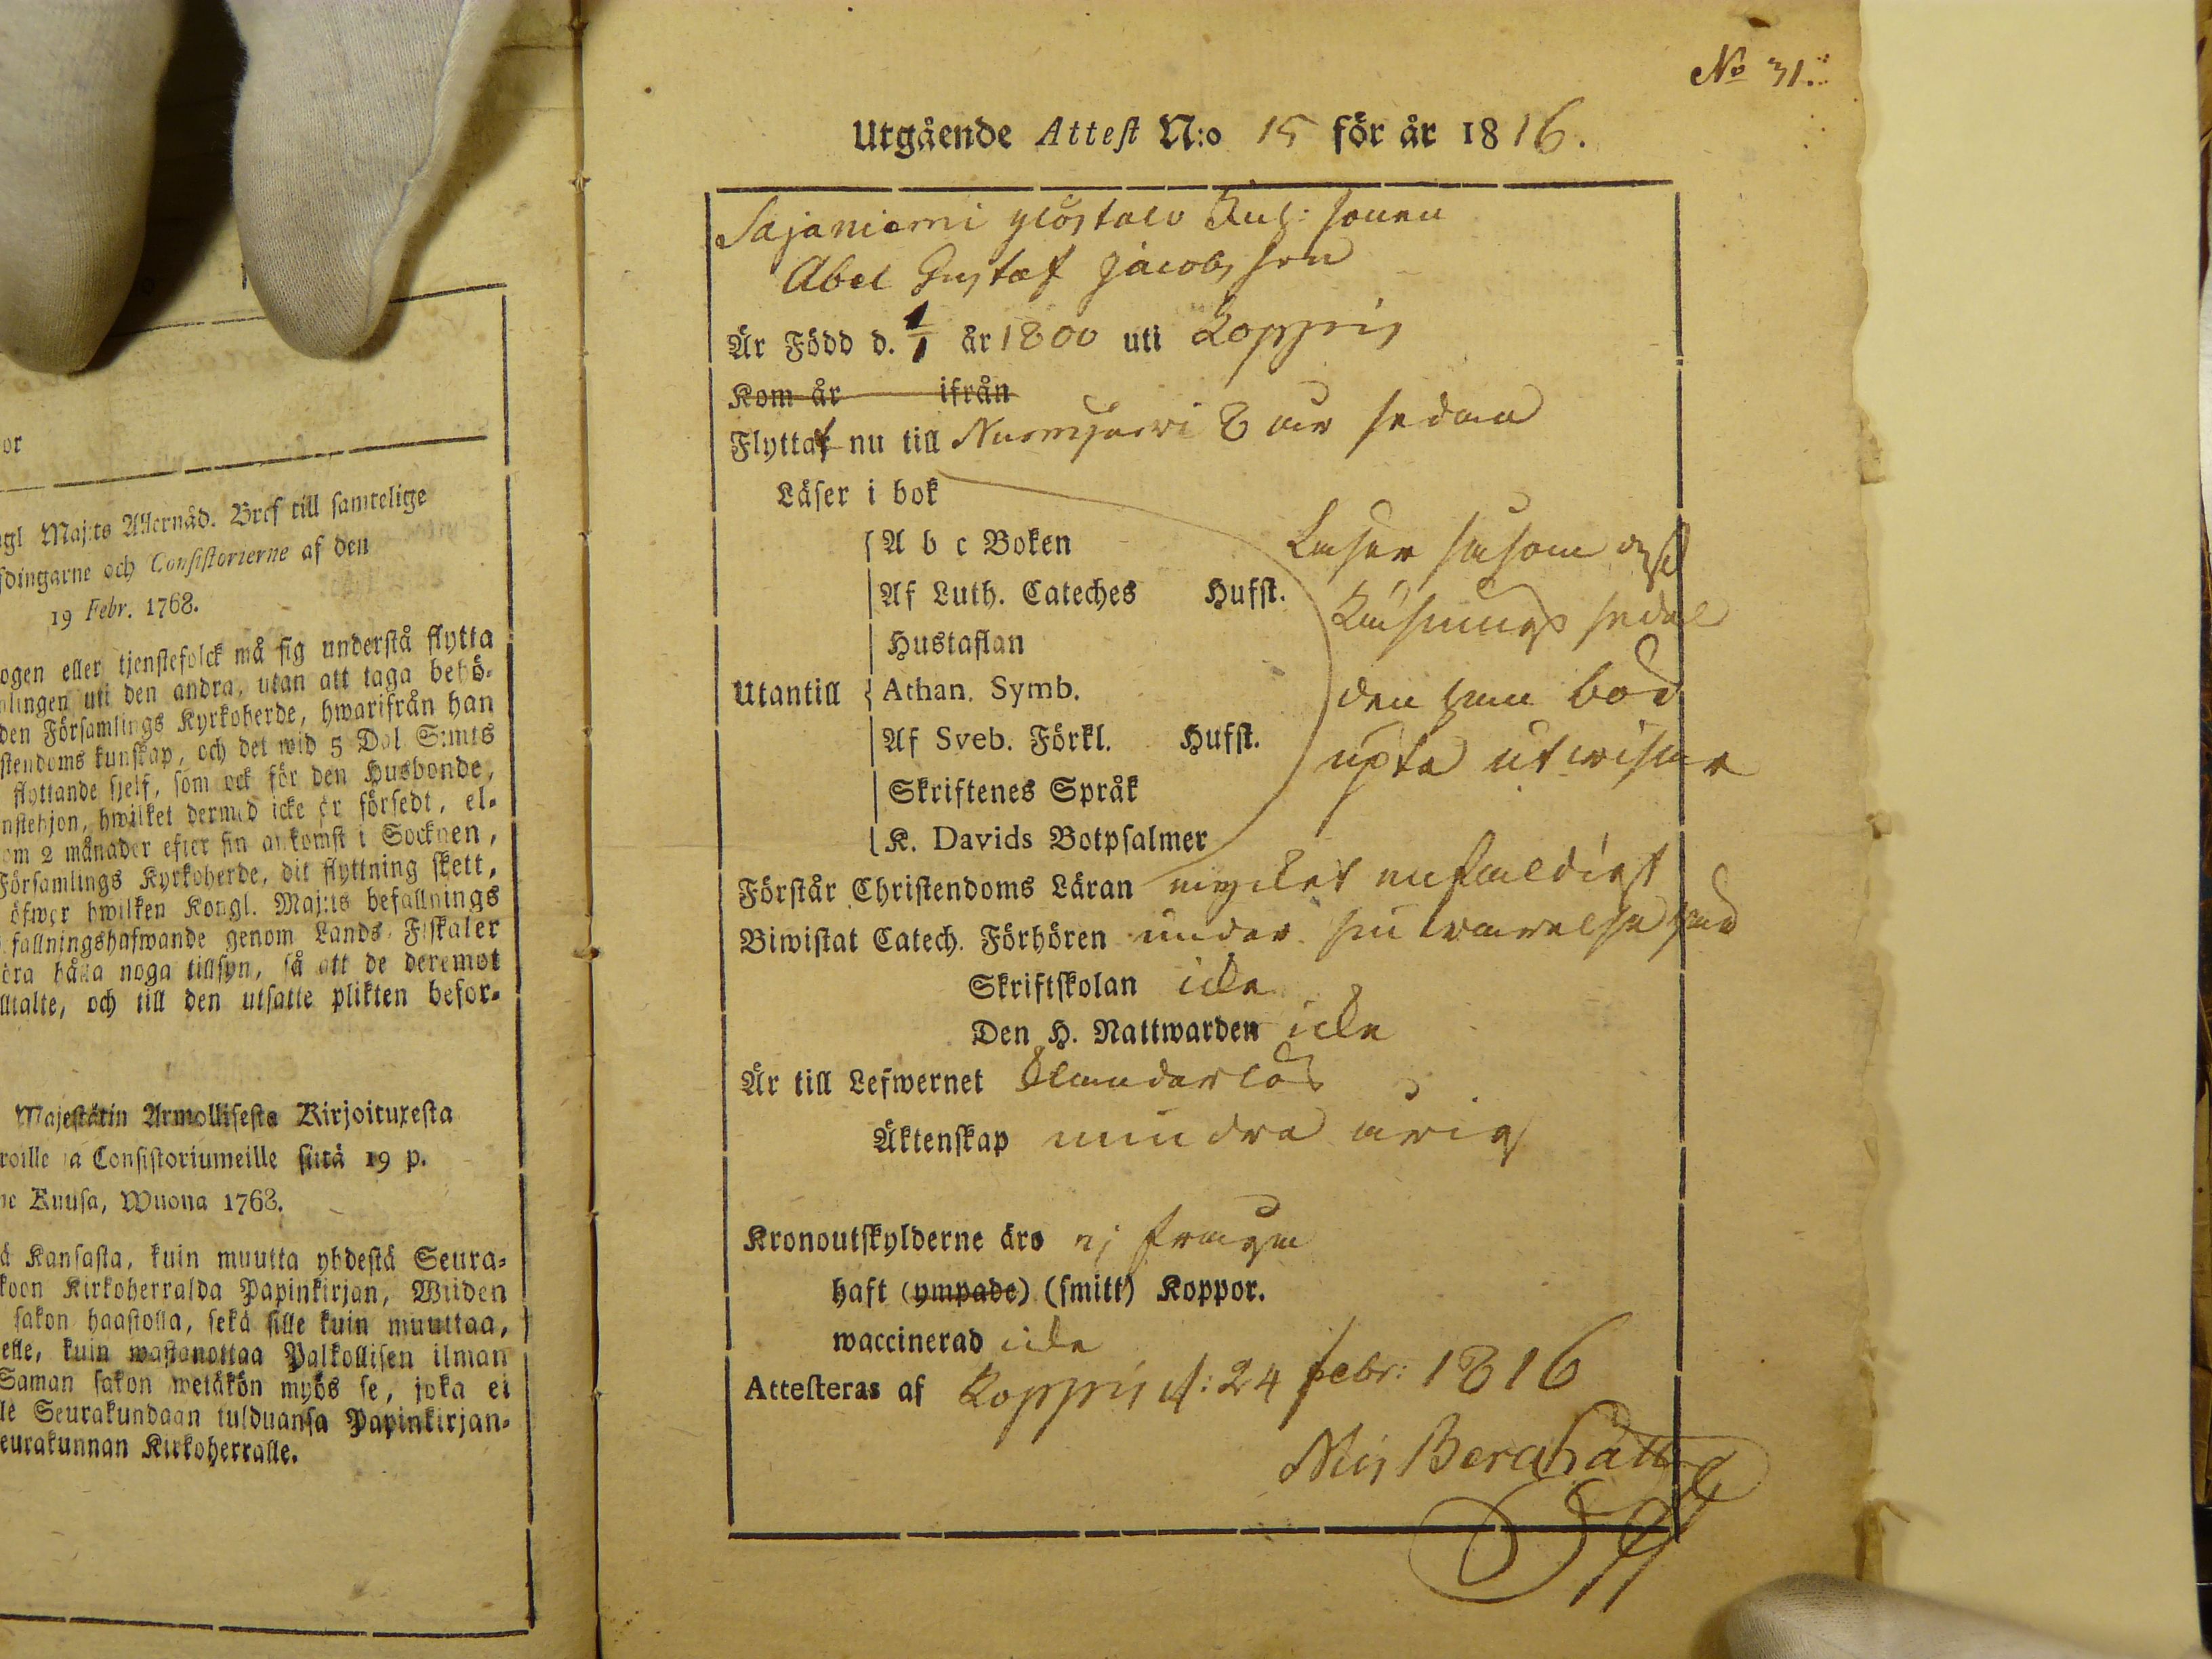 or
gl Maj:ts Allernåd. Bref till samtelige
fdingarne och Consistorierne af den
19 Febr. 1768.
ogen eller tjenstefolck må sig understå flytta
lingen uti den andra, utan att taga behö-
den Församlings Kyrkoherde, hwarifrån han
stendoms kunskap, och det wid 5 Dal. S:mts
flyttande sjelf, som ock för den Husbonde,
nstehjon, hwilket dermed icke är försedt, el-
om 2 månader efter sin ankomst i Socknen,
Församlings Kyrkoherde, dit flyttning skett,
öfwer hwilken Kongl. Maj:ts befallnings
fallningshafwande genom Lands Fiskaler
öra hålla noga tillsyn, så att de deremot
lltalte, och till den utsatte plikten befor-
Majestätin Armollisesta Kirjoituxesta
roille ja Consistoriumeille siitä 19 p.
ne Kuusa, Wuona 1768.
ä Kansasta, kuin muutta yhdestä Seura-
koon Kirkoherralda Papinkirjan, Wiiden
sakon haastolla, sekä sille kuin muuttaa,
elle, kuin wastanottaa Palkollisen ilman
Saman sakon wetäkön myös se, joka ei
le Seurakundaan tulduansa Papinkirjan-
eurakunnan Kirkoherralle.
No 31.
Utgående Attest N:o 15 för år 1816.
Sajaniemi sonen
Abel Gustaf Jacobsson
Är Född d. 1/1 år 1800 uti Koppis
Kom år ifrån
Flyttat nu till Nurmjerwi 8 år sedan
Läser i bok
A b c Boken Läser såsom
Af Luth. Cateches Hufst. sedel
Hustaflan
Utantill Athan. Symb. den han bod
Af Sveb. Förkl. Hufst. upta utwisar
Skriftenes Språk
K. Davids Botpsalmer
Förstår Christendoms Läran mycket enfaldigt
Biwistat Catech. Förhören under sin warelse
Skriftskolan icke
Den H. Nattwarden icke
Är till Lefwernet Klanderlös
Äktenskap mindre årig
Kronoutskylderne äro ej fråga
haft (ympade) (smitt) Koppor.
waccinerad icke
Attesteras af Koppis d: 24 Febr: 1816
Nils Berghäll